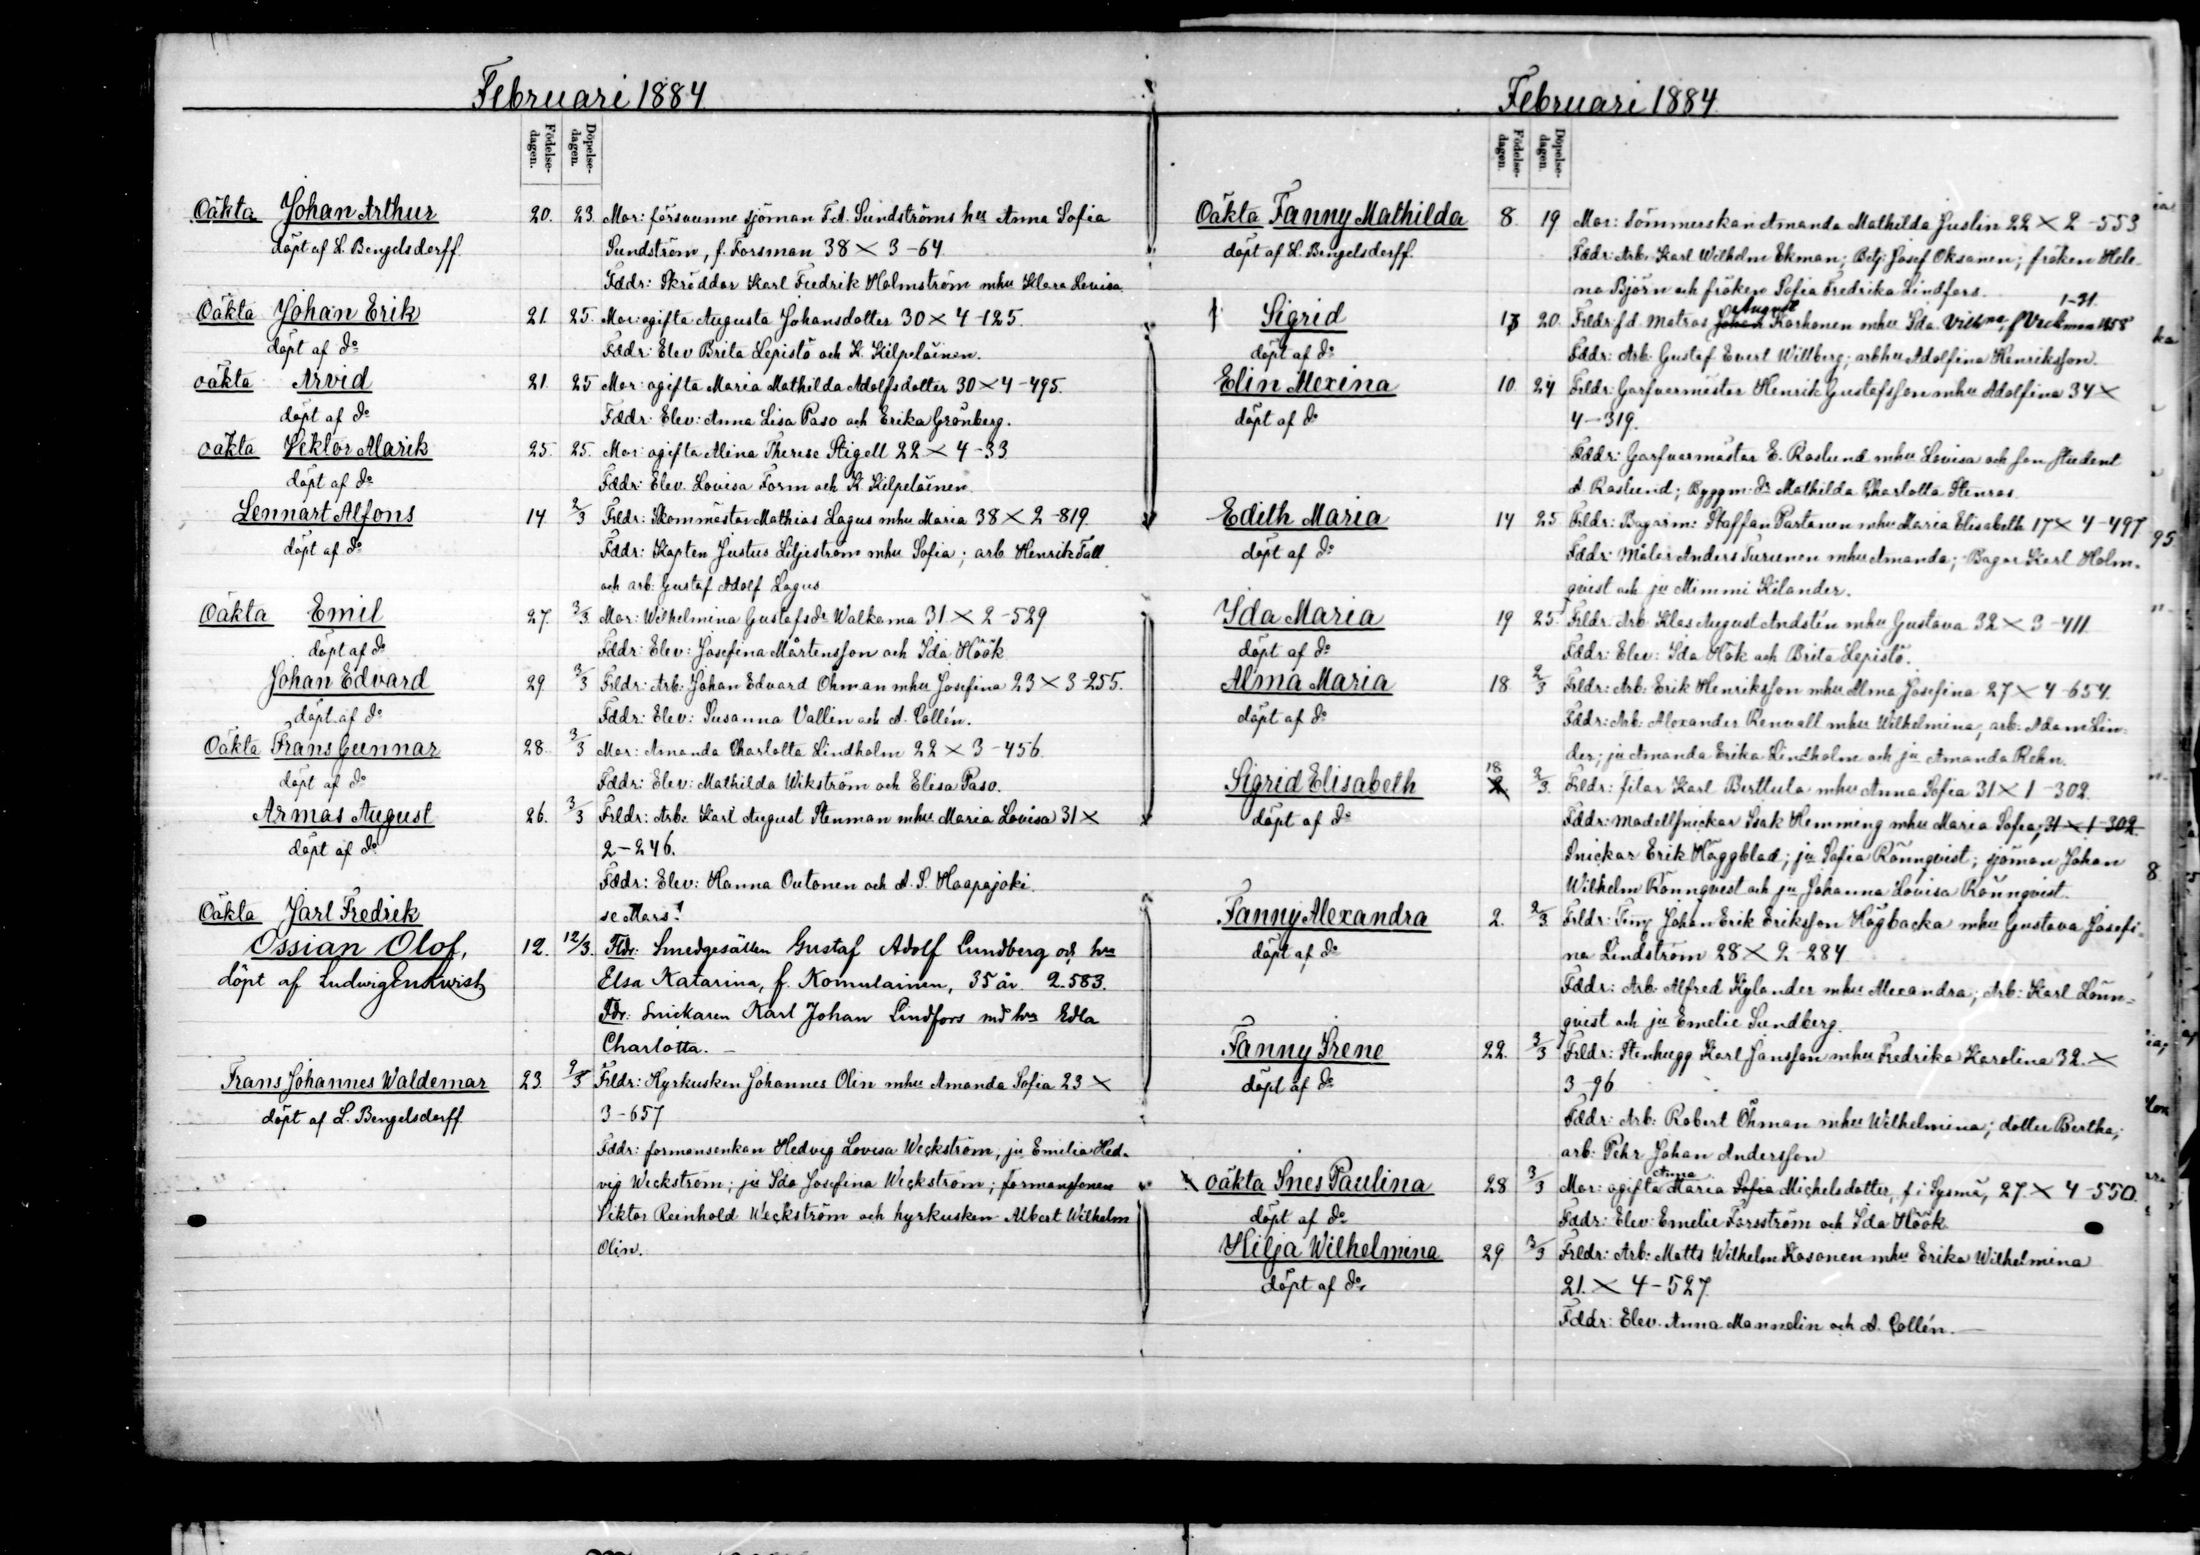 Februari 1884
Födelse-dagen.
Döpelse-dagen.
Oäkta Johan Arthur 20. 23. Mor: försvunne sjöman F.A. Sundströms hu Anna Sofia
döpt af L. Bengelsdorff. Sundström, f. Forsman 38 × 3-64
Fddr: Skräddar Karl Fredrik Holmström mhu Klara Lovisa.
Oäkta Johan Erik 21. 25. Mor: ogifta Augusta Johansdotter 30 × 4-125.
döpt af do Fddr: Elev Brita Lepistö och K. Kilpeläinen.
oäkta Arvid 21. 25 Mor: ogifta Maria Mathilda Adolfsdotter 30 × 4-495.
döpt af do Fddr: Elev: Anna Lisa Paso och Erika Grönberg.
oäkta Viktor Alarik 25. 25. Mor: ogifta Alina Therese Stigell 22 × 4-33
döpt af do Fddr: Elev. Lovisa Form och K. Kilpeläinen
Lennart Alfons 14. 2/3 Frldr: Skommästar Mathias Lagus mhu Maria 38 × 2-819
döpt af do Fddr: Kapten Justus Liljeström mhu Sofia; arb Henrik Fall
och arb: Gustaf Adolf Lagus
Oäkta Emil 27. 3/3 Mor: Wilhelmina Gustafsdr Walkama 31 × 2-529
döpt af do Fddr: Elev: Josefina Mårtensson och Ida Höök
Johan Edvard 29. 3/3 Frldr: Arb: Johan Edvard Öhman mhu Josefina 23 × 3-255.
döpt af do Fddr: Elev: Susanna Vallin och A. Collén.
Oäkta Frans Gunnar 28. 3/3 Mor: Amanda Charlotta Lindholm 22 × 3-456.
döpt af do Fddr: Elev: Mathilda Wikström och Elisa Paso.
Armas August 26. 3/3 Frldr: Arb: Karl August Stenman mhu Maria Lovisa 31 ×
döpt af do 2-246.
Fddr: Elev: Hanna Outonen och A. S. Haapajoki.
Oäkta Jarl Fredrik se Mars!
Ossian Olof, 12. 12/3. Fldr: Smedgesällen Gustaf Adolf Lundberg och hu
döpt af Ludwig Enqwist Elsa Katarina, f. Komulainen, 35 år. 2.583.
Fdr: Snickaren Karl Johan Lindfors md hu Edla
Charlotta. —
Frans Johannes Waldemar 23. 9/3 Frldr: Hyrkusken Johannes Olin mhu Amanda Sofia 23 ×
döpt af L. Bengelsdorff 3-657
Fddr: formansenkan Hedvig Lovisa Weckström; ju Emilia Hed-
vig Weckström; ju Ida Josefina Weckström; formansonen
Viktor Reinhold Weckström och hyrkusken Albert Wilhelm
Olin.
Februari 1884
Födelse-dagen.
Döpelse-dagen.
Oäkta Fanny Mathilda 8. 19 Mor: Sömmerskan Amanda Mathilda Juslin 22 × 2-553
döpt af L. Bengelsdorff. Fddr: Arb. Karl Wilhelm Ekman; Betj: Josef Oksanen; fröken Hele-
na Björn och fröken Sofia Fredrika Lindfors.
August 1-31.
Sigrid 13 20. Frldr: fd. Matros Johan Karhonen mhu Ida Vilhna, f Vickman 1858
döpt af do Fddr: Arb: Gustaf Evert Willberg; arbhu Adolfina Henriksson.
Elin Alexina 10. 24 Frldr: Garfvermästar Henrik Gustafsson mhu Adolfina 34 ×
döpt af do 4-319.
Fddr: Garfvermästar E. Roslund mhu Lovisa och son student
A. Roslund; Byggm: dr Mathilda Charlotta Stenros
Edith Maria 14 25 Frldr: Bagarm: Staffan Partanen mhu Maria Elisabeth 17 × 4-497
döpt af do Fddr: Målar Anders Turunen mhu Amanda; Bagar Karl Holm-
qvist och ju Mimmi Kilander.
Ida Maria 19 25 Frldr: Arb Klas August Andstén mhu Gustava 32 × 3-411.
döpt af do Fddr: Elev: Ida Höök och Brita Lepistö.
Alma Maria 18 2/3 Frldr: Arb: Erik Henriksson mhu Alma Josefina 27 × 4-654
döpt af do Fddr: Arb: Alexander Renvall mhu Wilhelmina, arb: Adam Lin-
der; ju Amanda Erika Lindholm och ju Amanda Rehn.
18
Sigrid Elisabeth 2/3. Frldr: filar Karl Berttula mhu Anna Sofia 31 × 1-302.
döpt af do Fddr: Modellsnickar Isak Hemming mhu Maria Sofia; 31 × 1-302
Snickar Erik Häggblad; ju Sofia Rönnqvist; sjöman Johan
Wilhelm Rönnqvist och ju Johanna Lovisa Rönnqvist.
Fanny Alexandra 2. 2/3. Frldr: Timm Johan Erik Eriksson Högbacka mhu Gustava Josefi-
döpt af do na Lindström 28 × 2-284
Fddr: Arb: Alfred Kylander mhu Alexandra; Arb: Karl Lönn-
qvist och ju Emelie Sundberg.
Fanny Irene 22. 3/3 Frldr: Stenhugg Karl Jansson mhu Fredrika Karolina 32. ×
döpt af do 3-96
Fddr: Arb: Robert Öhman mhu Wilhelmina; dotter Bertha;
arb: Pehr Johan Andersson
Anna
oäkta Ines Paulina 28 3/3 Mor: ogifta Maria Sofia Michelsdotter, f i Sysmä, 27. × 4-550.
döpt af do Fddr: Elev: Emelie Forsström och Ida Höök
Hilja Wilhelmina 29 3/3 Frldr: Arb: Matts Wilhelm Kosonen mhu Erika Wilhelmina
döpt af do 21. × 4-527.
Fddr: Elev. Anna Mannelin och A. Collén. —